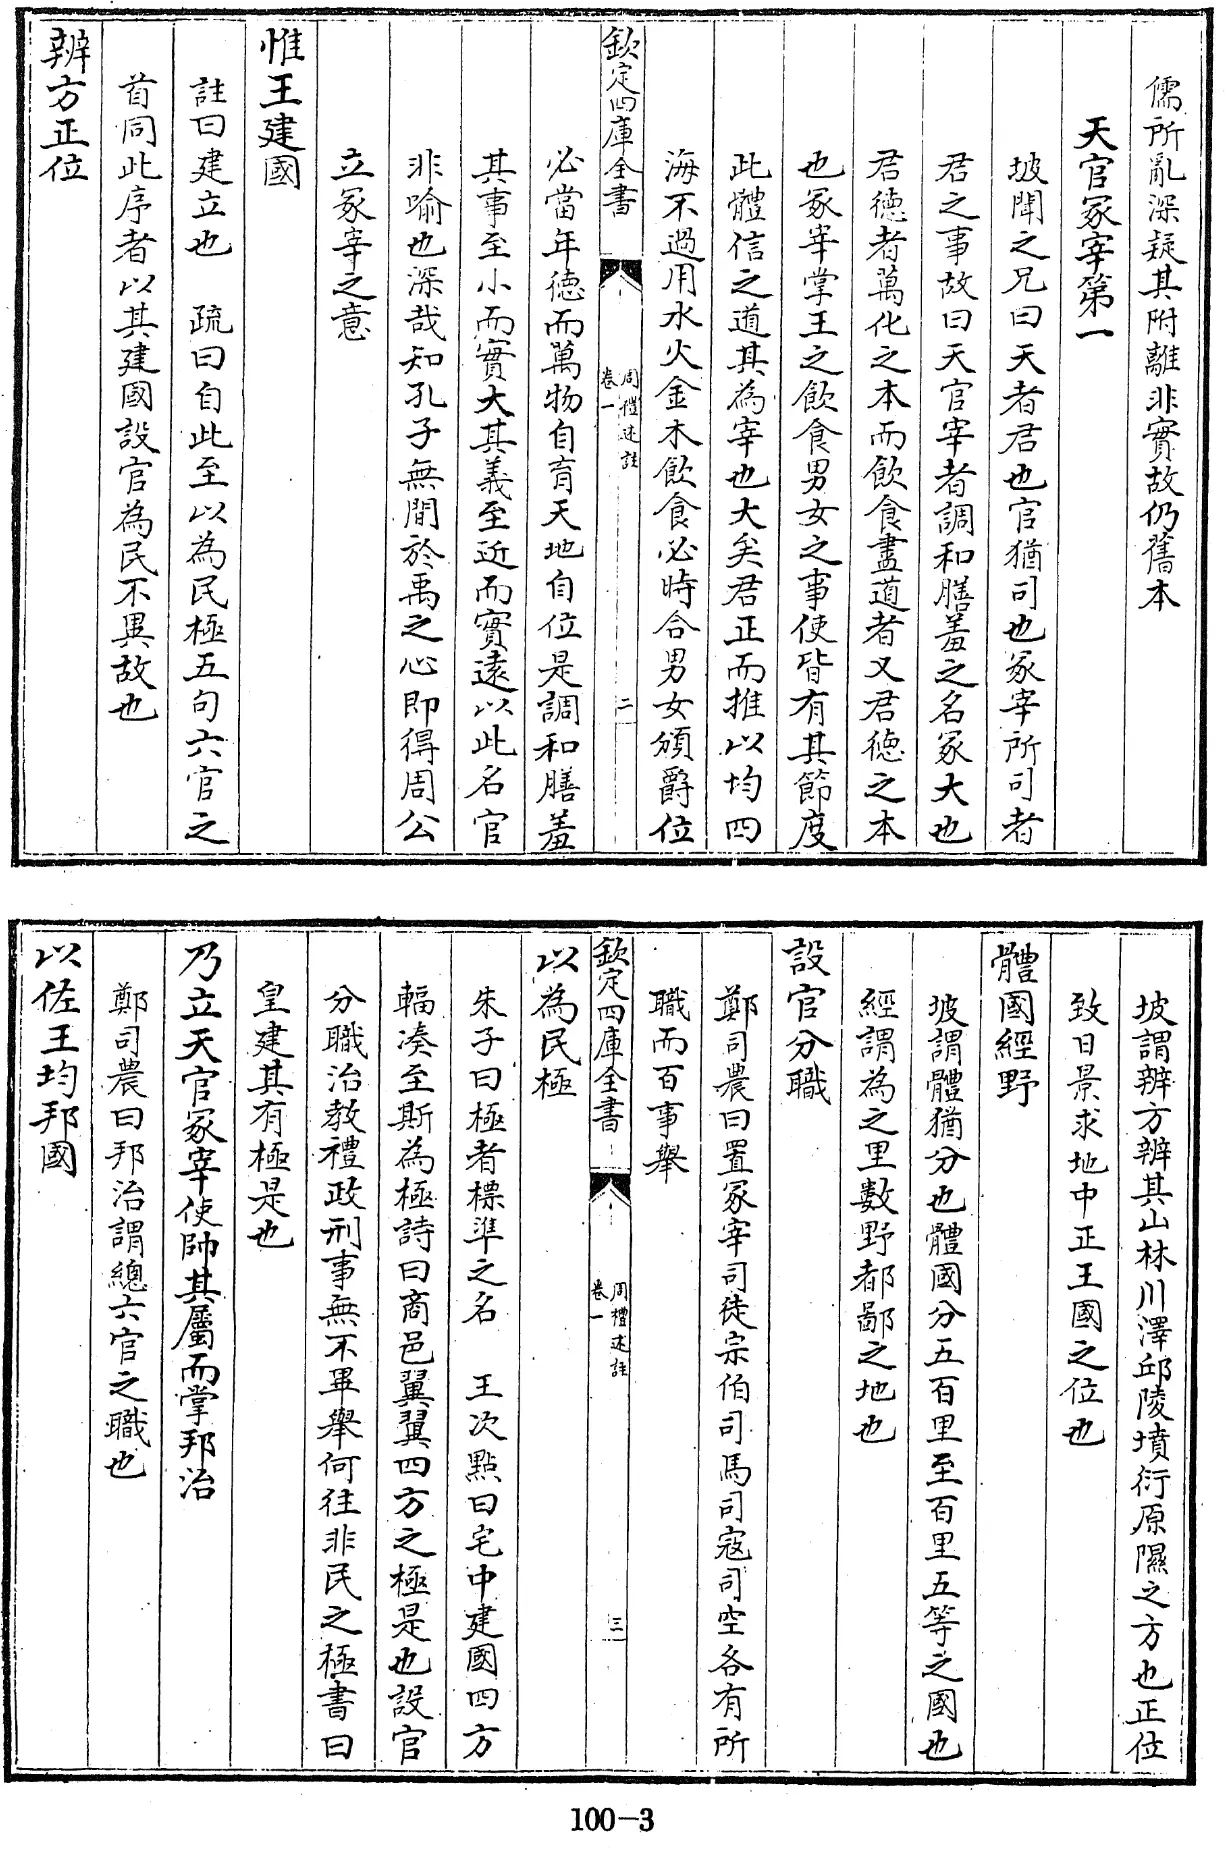 儒所亂深疑其附離非實故仍舊本
天官冢宰第一
坡聞之兄曰天者君也官猶司也冢宰所司者
君之事故曰天官宰者調和膳羞之名冢大也
君德者萬化之本而飲食盡道者又君德之本
也冢宰掌王之飲食男女之事使皆有其節度
此體信之道其為宰也大矣君正而推以均四
海不過用水火金木飲食必時合男女頒爵位
欽定四庫全書
周禮述註
卷一
二
必當年德而萬物自育天地自位是調和膳羞
其事至小而實大其義至近而實遠以此名官
非喻也深哉知孔子無間於禹之心即得周公
立冢宰之意
惟王建國
註曰建立也 疏曰自此至以為民極五句六官之
首同此序者以其建國設官為民不異故也
辨方正位
坡謂辨方辨其山林川澤邱陵墳衍原隰之方也正位
致日景求地中正王國之位也
體國經野
坡謂體猶分也體國分五百里至百里五等之國也
經謂為之里數野都鄙之地也
設官分職
鄭司農曰置冢宰司徒宗伯司馬司寇司空各有所
職而百事舉
欽定四庫全書
周禮述註
卷一
三
以為民極
朱子曰極者標準之名 王次點曰宅中建國四方
輻湊至斯為極詩曰商邑翼翼四方之極是也設官
分職治教禮政刑事無不畢舉何往非民之極書曰
皇建其有極是也
乃立天官冢宰使帥其屬而掌邦治
鄭司農曰邦治謂總六官之職也
以佐王均邦國
100-3